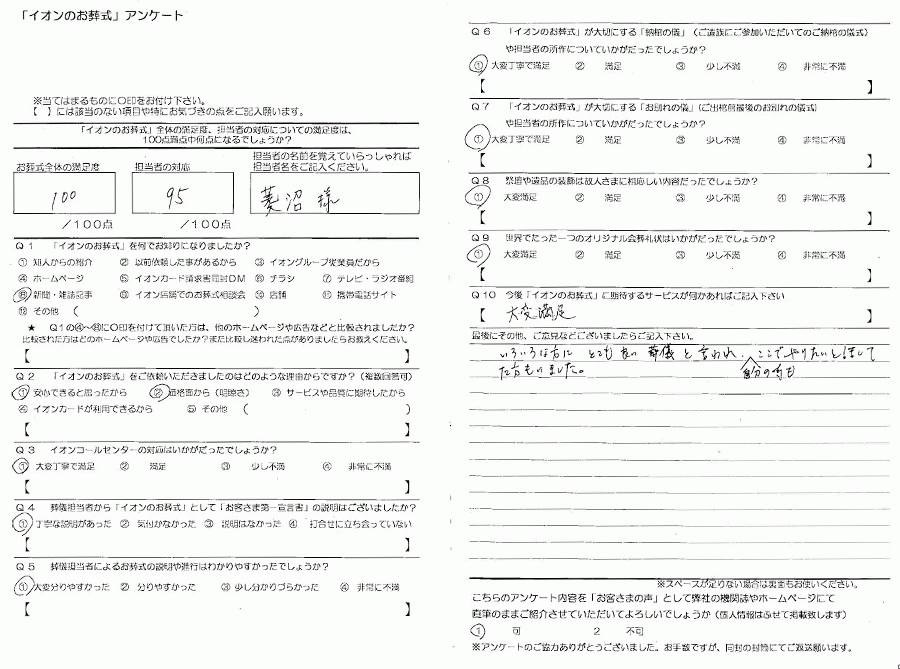 「イオンのお葬式」アンケート
※当てはまるものに○印をお付け下さい。
【　】には該当のない項目や特にお気づきの点をご記入願います。
「イオンのお葬式」全体の満足度、担当者の対応についての満足度は、
100点満点中何点になるでしょうか?
お葬式全体の満足度
担当者の対応
担当者の名前を覚えていらっしゃれば
担当者名をご記入ください。
100
95
菱沼 様
/100点
/100点
Q1 「イオンのお葬式」を何でお知りになりましたか?
① 知人からの紹介 ② 以前依頼した事があるから ③ イオングループ従業員だから
④ ホームページ ⑤ イオンカード請求書同封DM ⑥ チラシ ⑦ テレビ・ラジオ番組
⑧ 新聞・雑誌記事 ⑨ イオン店舗でのお葬式相談会 ⑩ 店舗 ⑪ 携帯電話サイト
⑫ その他 ( )
★ Q1の④~⑪に○印を付けて頂いた方は、他のホームページや広告などと比較されましたか?
比較された方はどのホームページや広告でしたか?また比較し迷われた点がありましたらお教えください。
【 】
Q2 「イオンのお葬式」をご依頼いただきましたのはどのような理由からですか?(複数回答可)
① 安心できると思ったから ② 価格面から(明瞭さ) ③ サービスや品質に期待したから
④ イオンカードが利用できるから ⑤ その他 ( )
【 】
Q3 イオンコールセンターの対応はいかがだったでしょうか?
① 大変丁寧で満足 ② 満足 ③ 少し不満 ④ 非常に不満
【 】
Q4 葬儀担当者から「イオンのお葬式」として「お客さま第一宣言書」の説明はございましたか?
① 丁寧な説明があった ② 気付かなかった ③ 説明はなかった ④ 打合せに立ち会っていない
【 】
Q5 葬儀担当者によるお葬式の説明や進行はわかりやすかったでしょうか?
① 大変分りやすかった ② 分りやすかった ③ 少し分かりづらかった ④ 非常に不満
【 】
Q6 「イオンのお葬式」が大切にする「納棺の儀」(ご遺族にご参加いただいてのご納棺の儀式)
や担当者の所作についていかがだったでしょうか?
① 大変丁寧で満足 ② 満足 ③ 少し不満 ④ 非常に不満
【 】
Q7 「イオンのお葬式」が大切にする「お別れの儀」(ご出棺前最後のお別れの儀式)
や担当者の所作についていかがだったでしょうか?
① 大変丁寧で満足 ② 満足 ③ 少し不満 ④ 非常に不満
【 】
Q8 祭壇や遺品の装飾は故人さまに相応しい内容だったでしょうか?
① 大変満足 ② 満足 ③ 少し不満 ④ 非常に不満
【 】
Q9 世界でたった一つのオリジナル会葬礼状はいかがだったでしょうか?
① 大変満足 ② 満足 ③ 少し不満 ④ 非常に不満
【 】
Q10 今後「イオンのお葬式」に期待するサービスが何かあればご記入下さい
【 大変満足 】
最後にその他、ご意見などございましたらご記入下さい。
いろいろな方に とても良い 葬儀 と言われ、ここでやりたいとまして
た方もいました。 自分の時も
※スペースが足りない場合は裏面もお使いください。
こちらのアンケート内容を「お客さまの声」として弊社の機関誌やホームページにて
直筆のままご紹介させていただいてよろしいでしょうか(個人情報はふせて掲載致します)
① 可 2 不可
※アンケートのご協力ありがとうございました。お手数ですが、同封の封筒にてご返送願います。